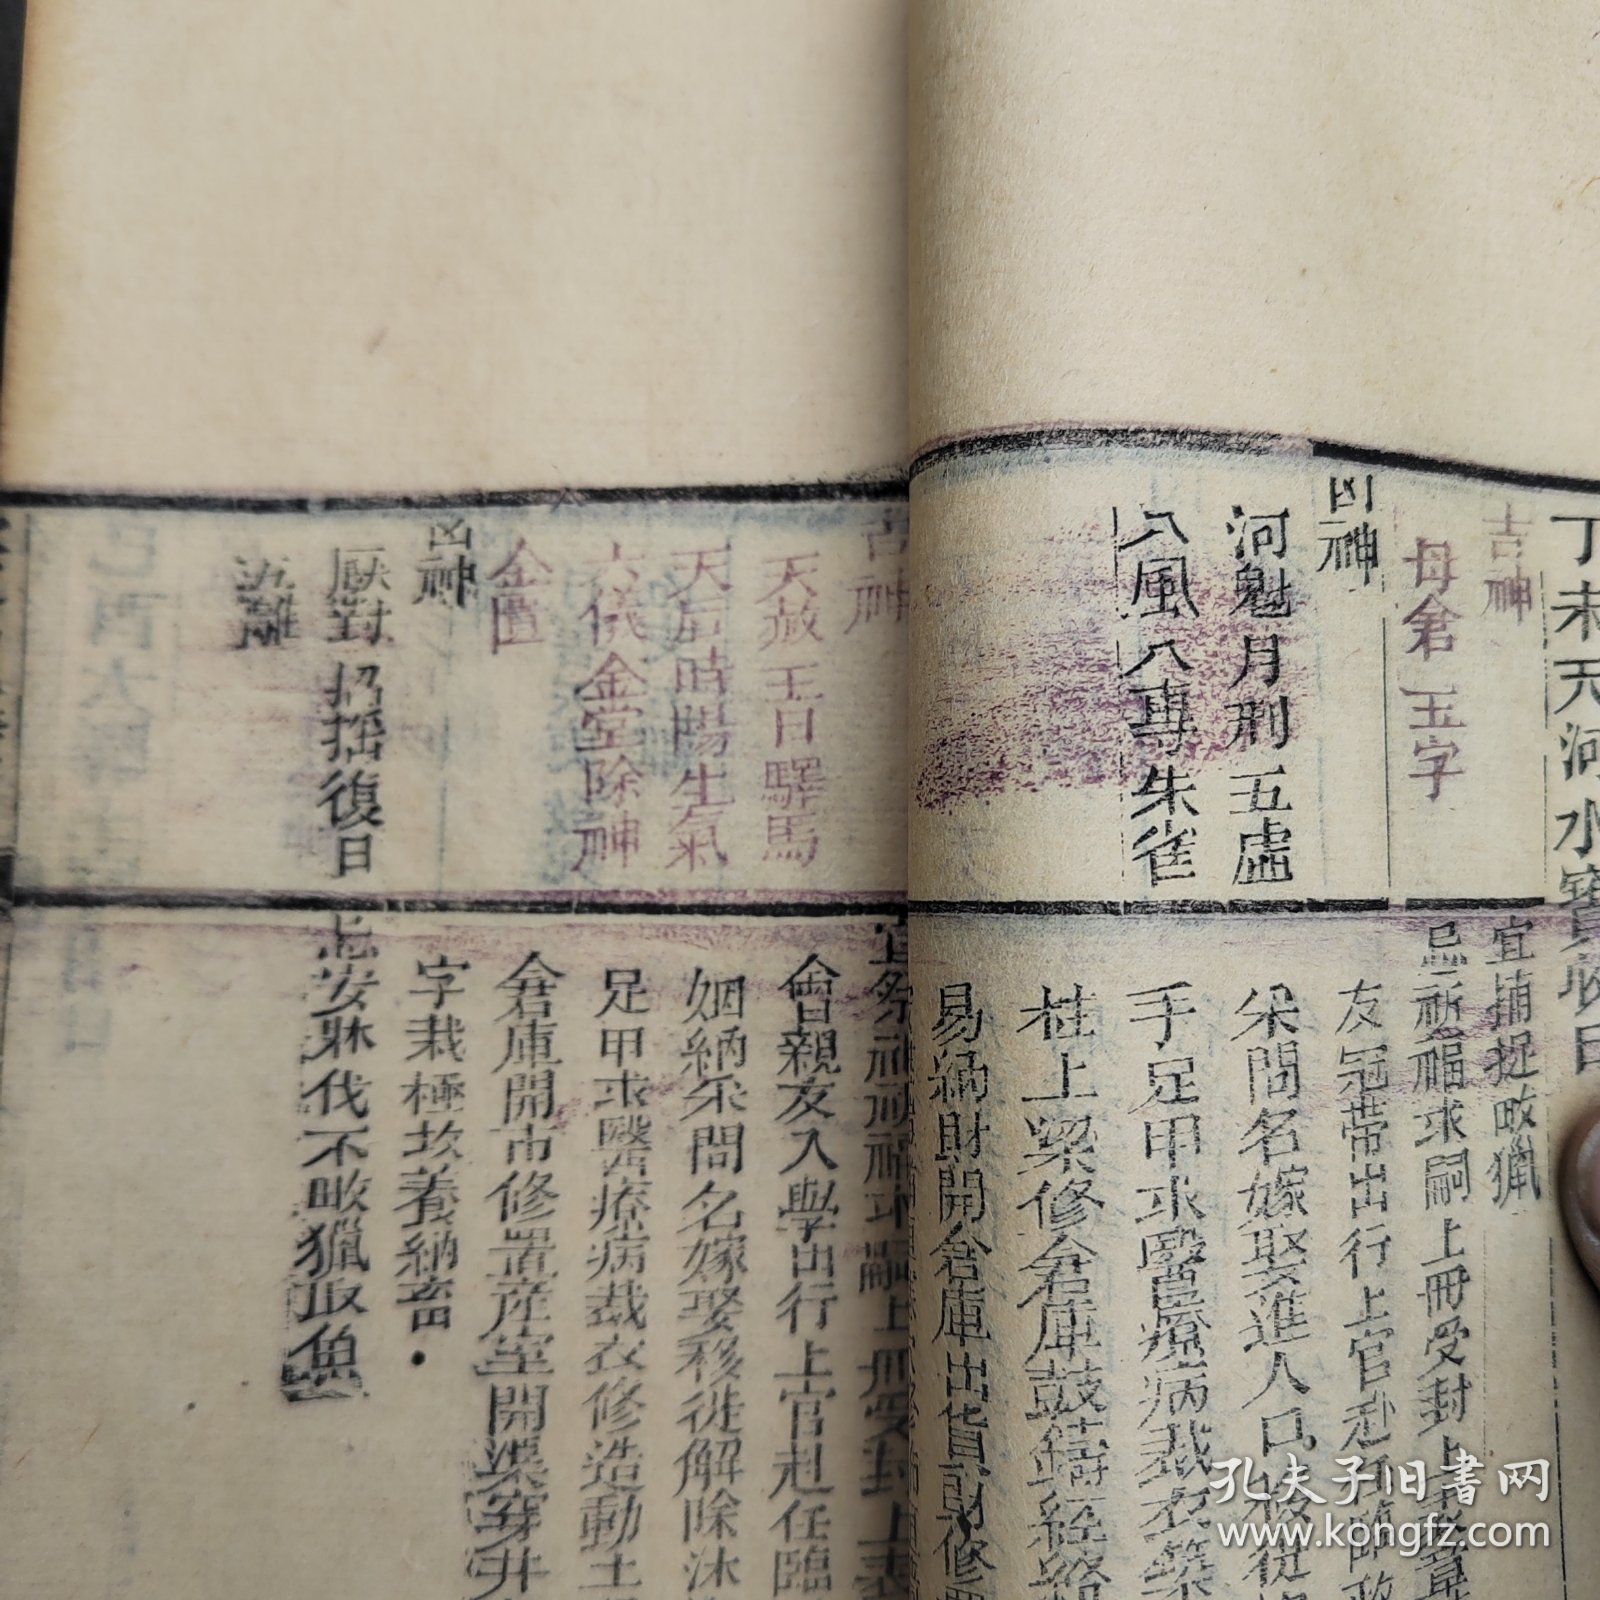 丁未天河水寶收日
吉神
母倉 玉宇
凶神
河魁 月刑 五虛
八風 八專 朱雀
宜捕捉畋獵
忌祈福求嗣上冊受封上表章
友冠帶出行上官赴
采問名嫁娶進人口移徙
手足甲求醫療病裁衣築
柱上梁修倉庫鼓鑄經絡
易納財開倉庫出貨財修
吉神
天赦 王日 驛馬
天后 時陽 生氣
六儀 金堂 除神
金匱
凶神
厭對 招搖 復日
宜祭祀祈福求嗣上冊受封上表
會親友入學出行上官赴任臨
姻納采問名嫁娶移徙解除沐
足甲求醫療病裁衣修造動土
倉庫開市修置產室開渠穿井
字栽種牧養納畜
忌安牀伐木畋獵取魚
孔夫子旧書网
www.kongfz.com